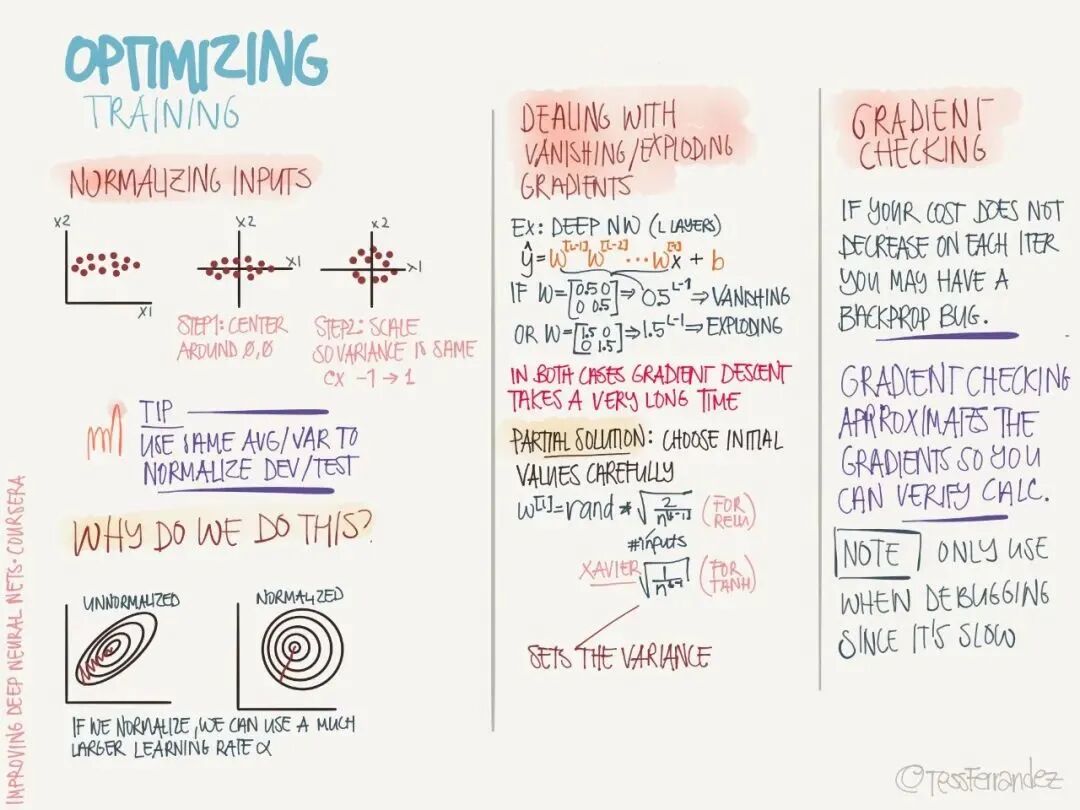 OPTIMIZING
TRAINING
NORMALIZING INPUTS
X2
X1
X2
X1
X2
X1
STEP1: CENTER
AROUND 0,0
STEP2: SCALE
SO VARIANCE IS SAME
EX -1 → 1
TIP
USE SAME AVG/VAR TO
NORMALIZE DEV/TEST
WHY DO WE DO THIS?
UNNORMALIZED
NORMALIZED
IF WE NORMALIZE, WE CAN USE A MUCH
LARGER LEARNING RATE α
DEALING WITH
VANISHING/EXPLODING
GRADIENTS
EX: DEEP NW (L LAYERS)
ŷ = W^[L-1] W^[L-2] ... W^[1] x + b
IF W = [0.5 0 0 0.5] ⇒ 0.5^L-1 ⇒ VANISHING
OR W = [1.5 0 0 1.5] ⇒ 1.5^L-1 ⇒ EXPLODING
IN BOTH CASES GRADIENT DESCENT
TAKES A VERY LONG TIME
PARTIAL SOLUTION: CHOOSE INITIAL
VALUES CAREFULLY
W^[l] = rand * √(2/n^[l-1]) (FOR RELU)
#inputs
XAVIER √(1/n^[l-1]) (FOR TANH)
SETS THE VARIANCE
GRADIENT
CHECKING
IF YOUR COST DOES NOT
DECREASE ON EACH ITER
YOU MAY HAVE A
BACKPROP BUG.
GRADIENT CHECKING
APPROXIMATES THE
GRADIENTS SO YOU
CAN VERIFY CALC.
NOTE ONLY USE
WHEN DEBUGGING
SINCE IT'S SLOW
IMPROVING DEEP NEURAL NETS · COURSERA
©TessFerrandez